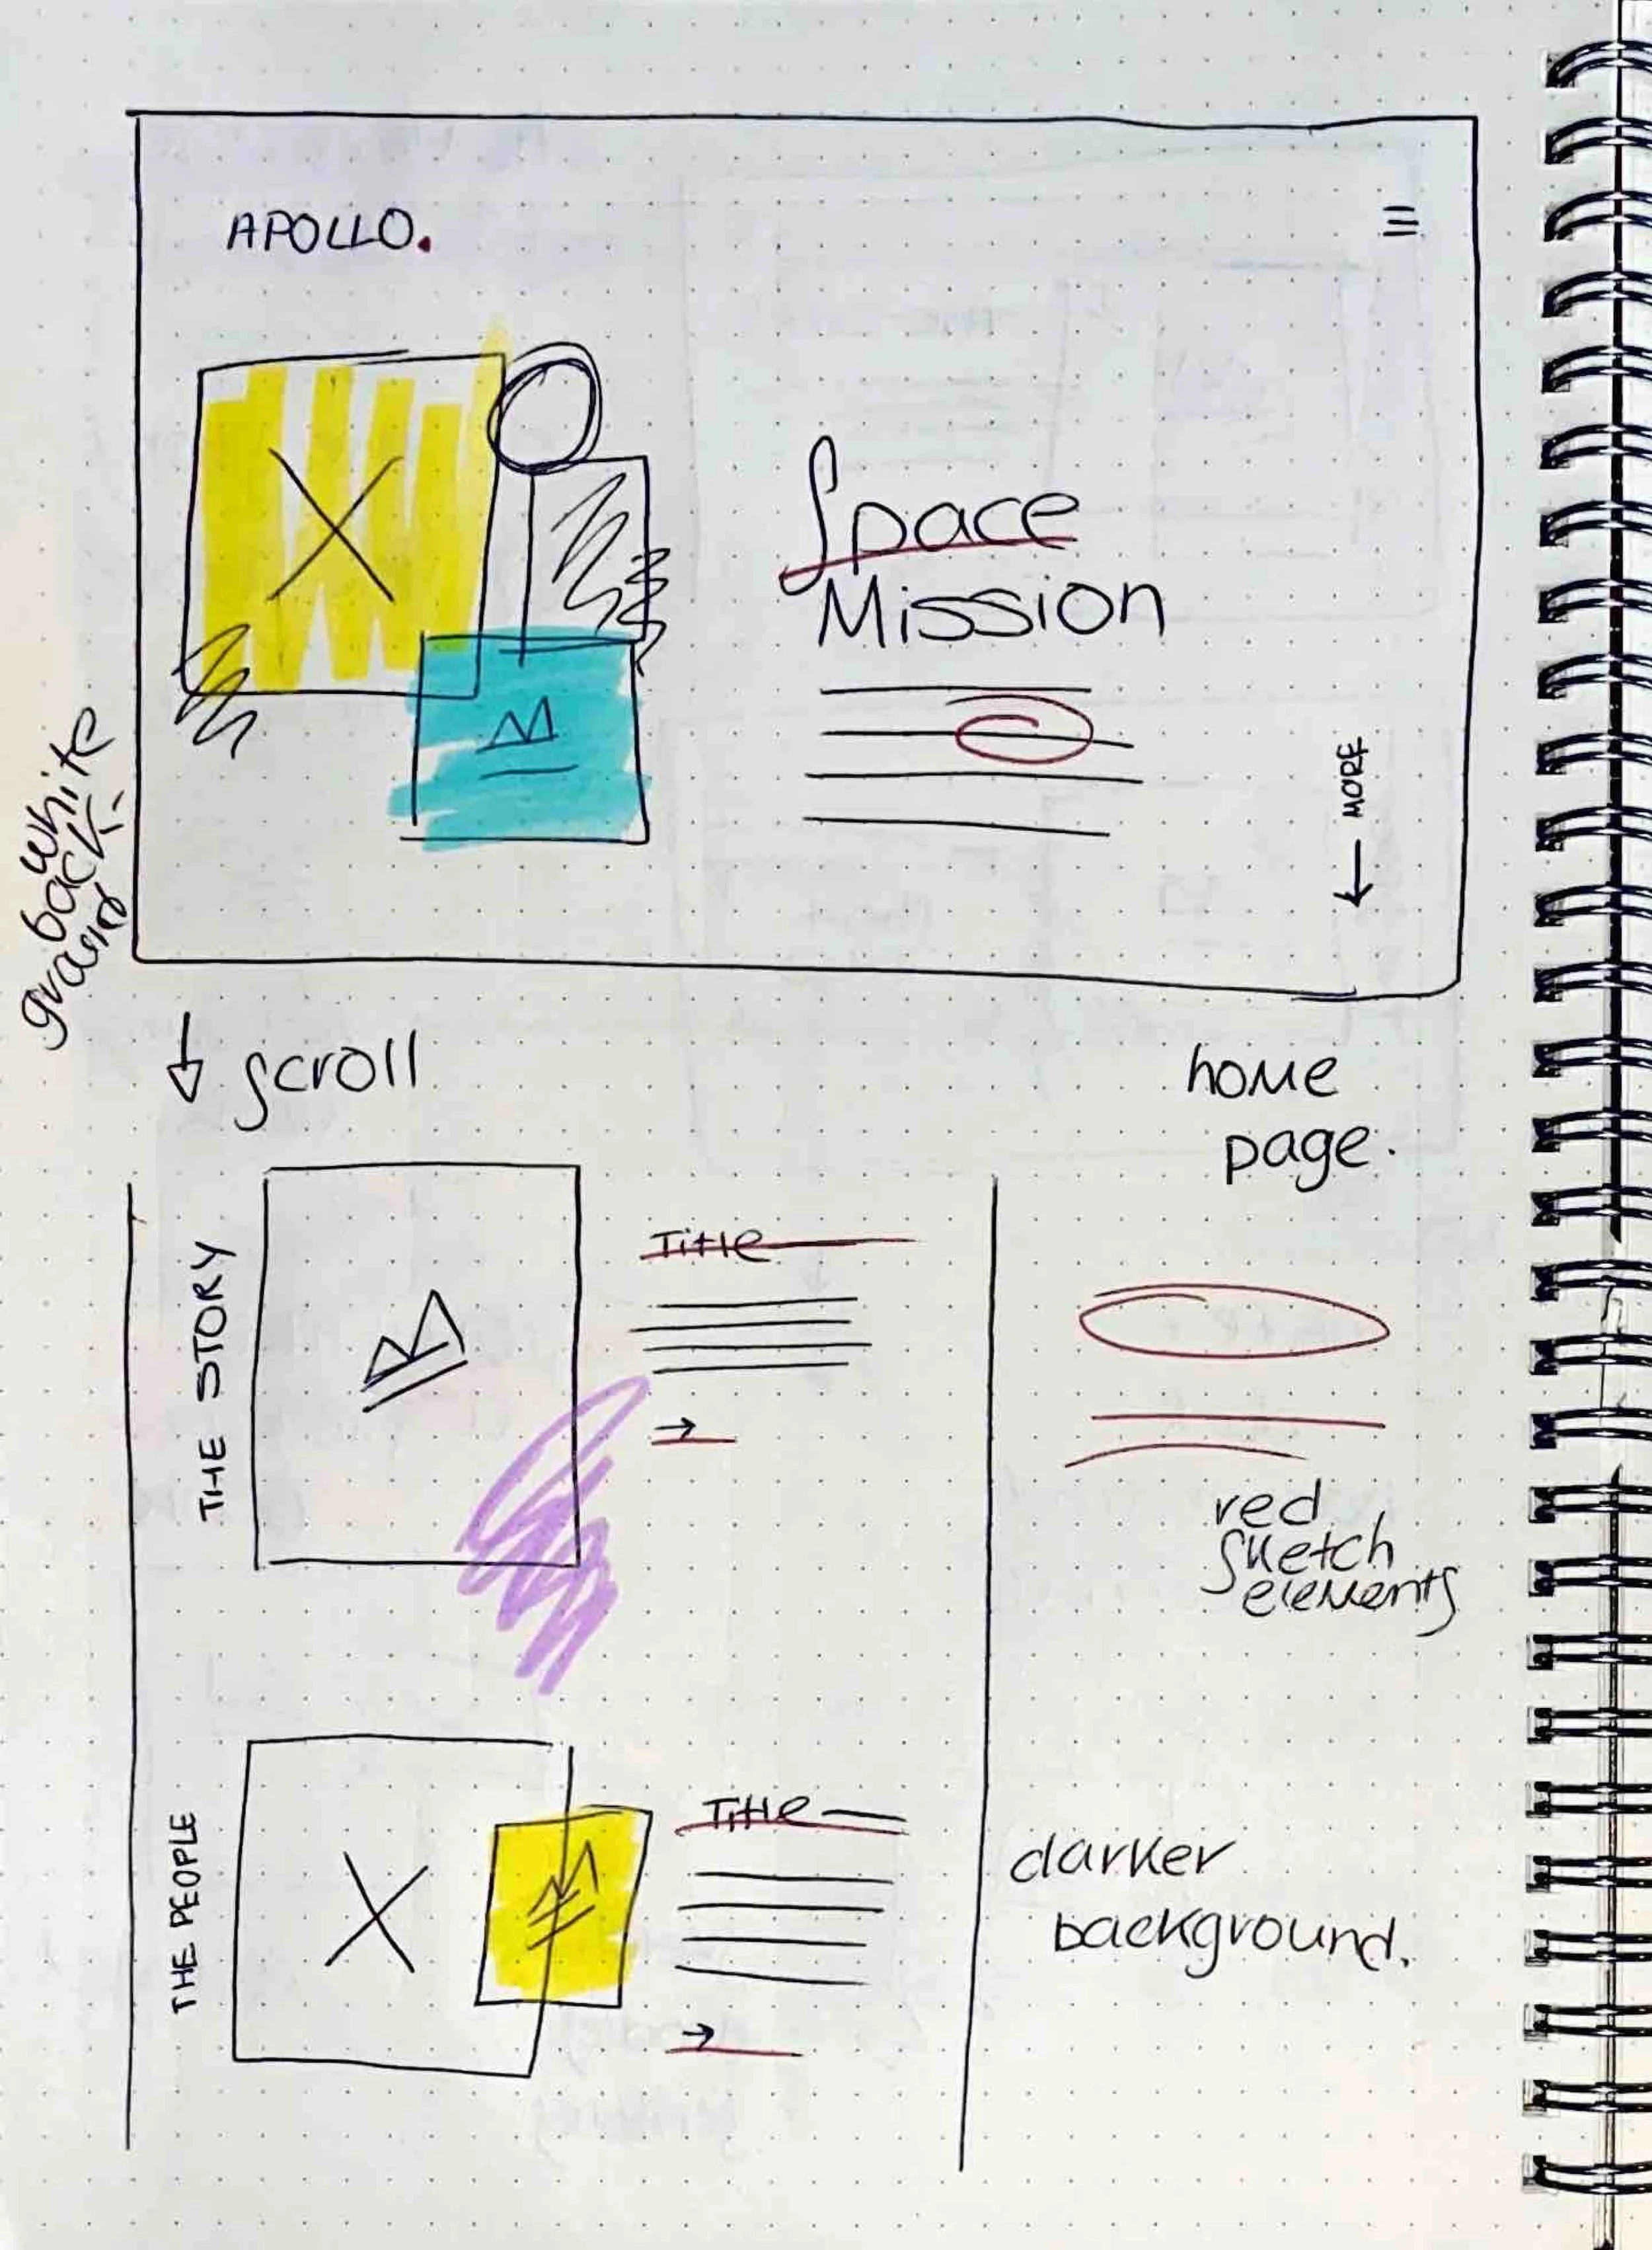 APOLLO.
Space
Mission
MORE
white
back-
ground
scroll
home
page.
THE STORY
Title
red
sketch
elements
THE PEOPLE
Title
darker
background.